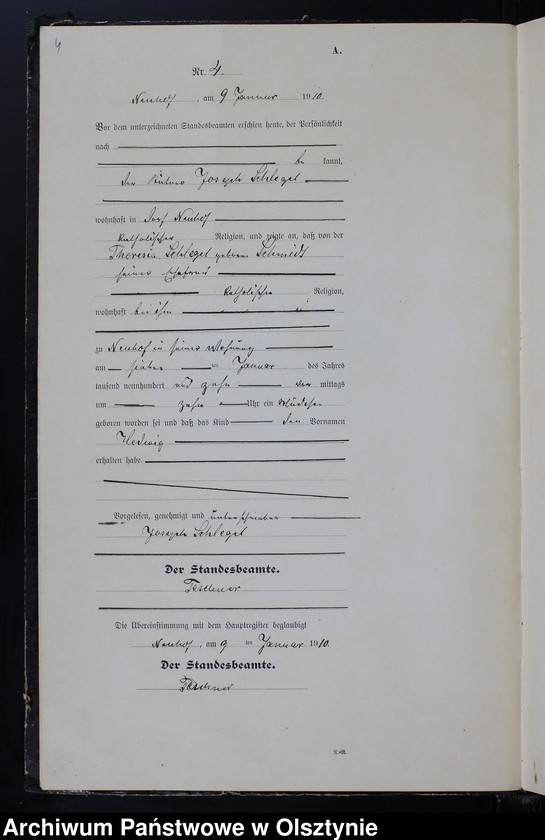 4
A.
Nr. 4.
Neuhof, am 9 Januar 1910.
Vor dem unterzeichneten Standesbeamten erschien heute, der Persönlichkeit
nach
be kannt,
der Joseph Schlegel
wohnhaft in Dorf Neuhof
katholischer Religion, und zeigte an, daß von der
Theresia Schlegel geborene Schmidt
seiner Ehefrau
katholischer Religion,
wohnhaft bei ihm
zu Neuhof in seiner Wohnung
am sieben ten Januar des Jahres
tausend neunhundert und zehn vor mittags
um zehn Uhr ein Mädchen
geboren worden sei und daß das Kind den Vornamen
Hedwig
erhalten habe.
Vorgelesen, genehmigt und unterschrieben
Joseph Schlegel
Der Standesbeamte.
Teschner
Die Übereinstimmung mit dem Hauptregister beglaubigt
Neuhof, am 9 ten Januar 1910.
Der Standesbeamte.
Teschner
Archiwum Państwowe w Olsztynie